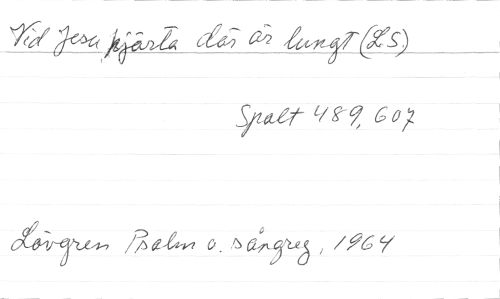 Vid Jesu hjärta där är lungt (L.S.)
Spalt 489, 607
Lövgren Psalm o. sångreg, 1964